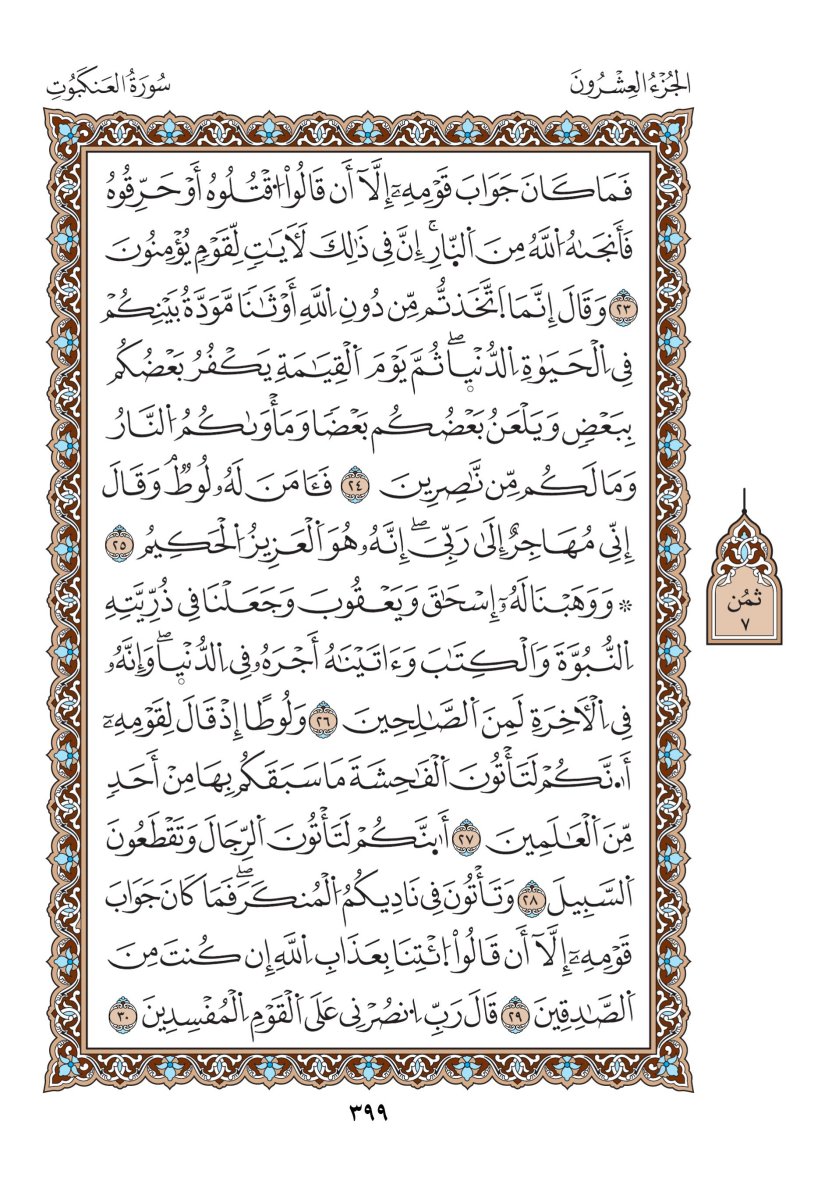 الجُزْءُ العِشْرُونَ
سُورَةُ العَنكَبُوتِ
فَمَا كَانَ جَوَابَ قَوْمِهِۦٓ إِلَّآ أَن قَالُواْ اُ۟قْتُلُوهُ أَوْ حَرِّقُوهُ
فَأَنجَىٰهُ اُ۬للَّهُ مِنَ اَ۬لنّ۪ارِۚ إِنَّ فِى ذَٰلِكَ لَأٓيَٰتٍ لِّقَوْمٍ يُؤْمِنُونَ
٢٣ وَقَالَ إِنَّمَا اَ۪تَّخَذتُّم مِّن دُونِ اِ۬للَّهِ أَوْثَٰنًا مَّوَدَّةُ بَيْنِكُمْ
فِى اِ۬لْحَيَوٰةِ اِ۬لدُّنْي۪اۖ ثُمَّ يَوْمَ اَ۬لْقِيَٰمَةِ يَكْفُرُ بَعْضُكُم
بِبَعْضٍ وَيَلْعَنُ بَعْضُكُم بَعْضًا وَمَأْوَىٰكُمُ اُ۬لنَّارُ
وَمَا لَكُم مِّن نَّٰصِرِينَ ٢٤ فَـَٔامَنَ لَهُۥ لُوطٌۘ وَقَالَ
إِنِّى مُهَاجِرٌ إِلَىٰ رَبِّىَۖ إِنَّهُۥ هُوَ اَ۬لْعَزِيزُ اُ۬لْحَكِيمُ ٢٥
۞ وَوَهَبْنَا لَهُۥٓ إِسْحَٰقَ وَيَعْقُوبَ وَجَعَلْنَا فِى ذُرِّيَّتِهِ
اِ۬لنُّبُوَّةَ وَالْكِتَٰبَ وَءَاتَيْنَٰهُ أَجْرَهُۥ فِى اِ۬لدُّنْي۪اۖ وَإِنَّهُۥ
فِى اِ۬لْأٓخِرَةِ لَمِنَ اَ۬لصَّٰلِحِينَ ٢٦ وَلُوطًا إِذْ قَالَ لِقَوْمِهِۦٓ
أَا۟نَّكُمْ لَتَأْتُونَ اَ۬لْفَٰحِشَةَ مَا سَبَقَكُم بِهَا مِنْ أَحَدٍ
مِّنَ اَ۬لْعَٰلَمِينَ ٢٧ أَى۪نَّكُمْ لَتَأْتُونَ اَ۬لرِّجَالَ وَتَقْطَعُونَ
اَ۬لسَّبِيلَ ٢٨ وَتَأْتُونَ فِى نَادِيكُمُ اُ۬لْمُنكَرَۖ فَمَا كَانَ جَوَابَ
قَوْمِهِۦٓ إِلَّآ أَن قَالُواْ اُ۪ئْتِنَا بِعَذَابِ اِ۬للَّهِ إِن كُنتَ مِنَ
اَ۬لصَّٰدِقِينَ ٢٩ قَالَ رَبِّ اِ۟نصُرْنِى عَلَى اَ۬لْقَوْمِ اِ۬لْمُفْسِدِينَ ٣٠
ثُمُن
٧
٣٩٩